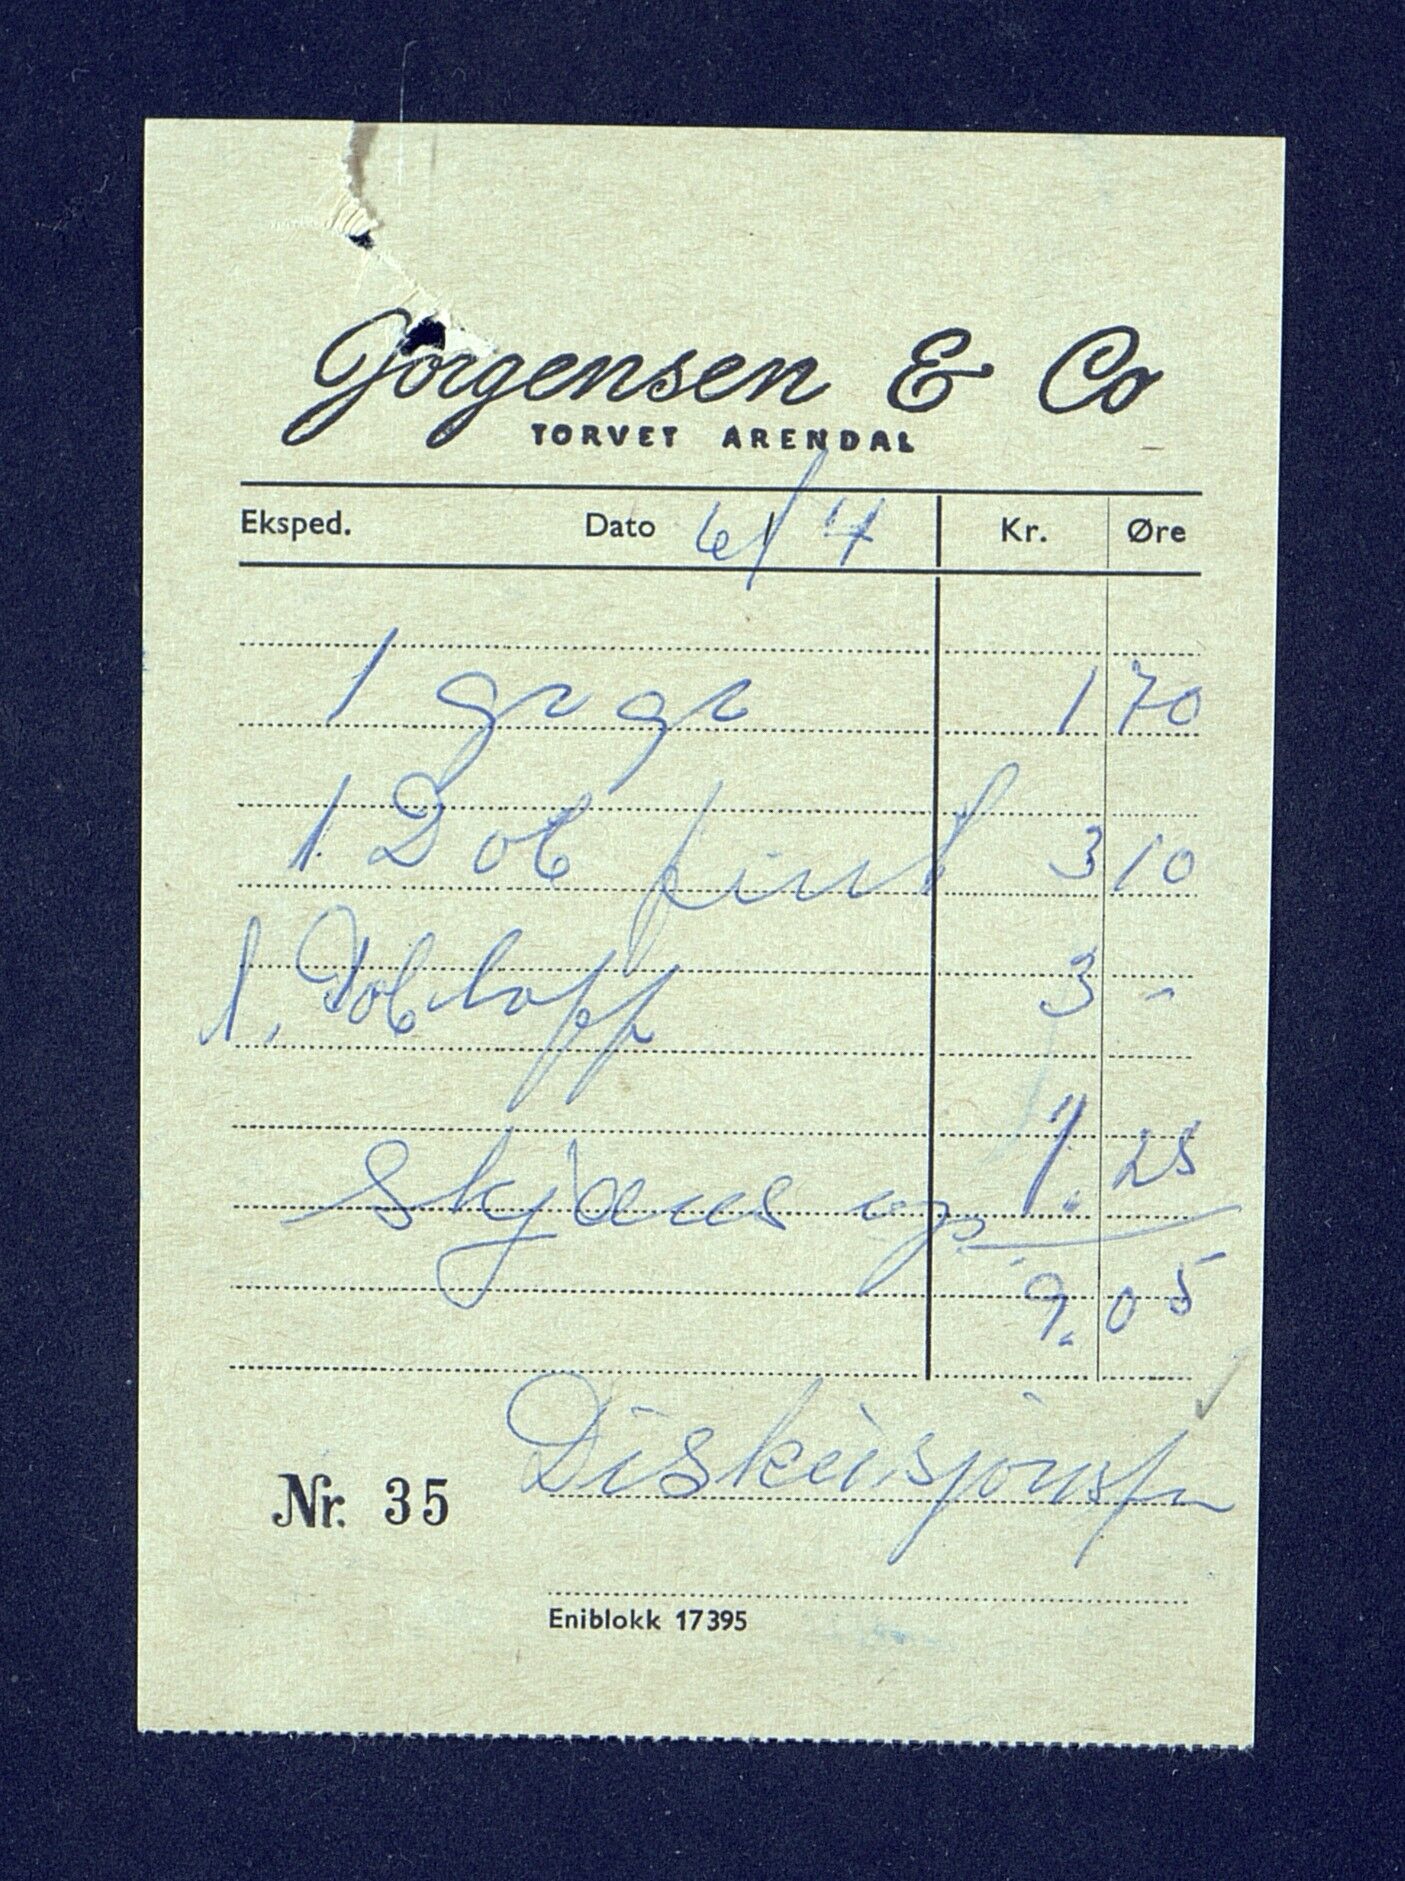 Jørgensen & Co
TORVET ARENDAL
Eksped. Dato 6/4 Kr. Øre
1 1 70
1. Dob fint 3 10
1. Dob lopp 3 -
1. 25
9. 05
Diskusjonsf
Nr. 35
Eniblokk 17395